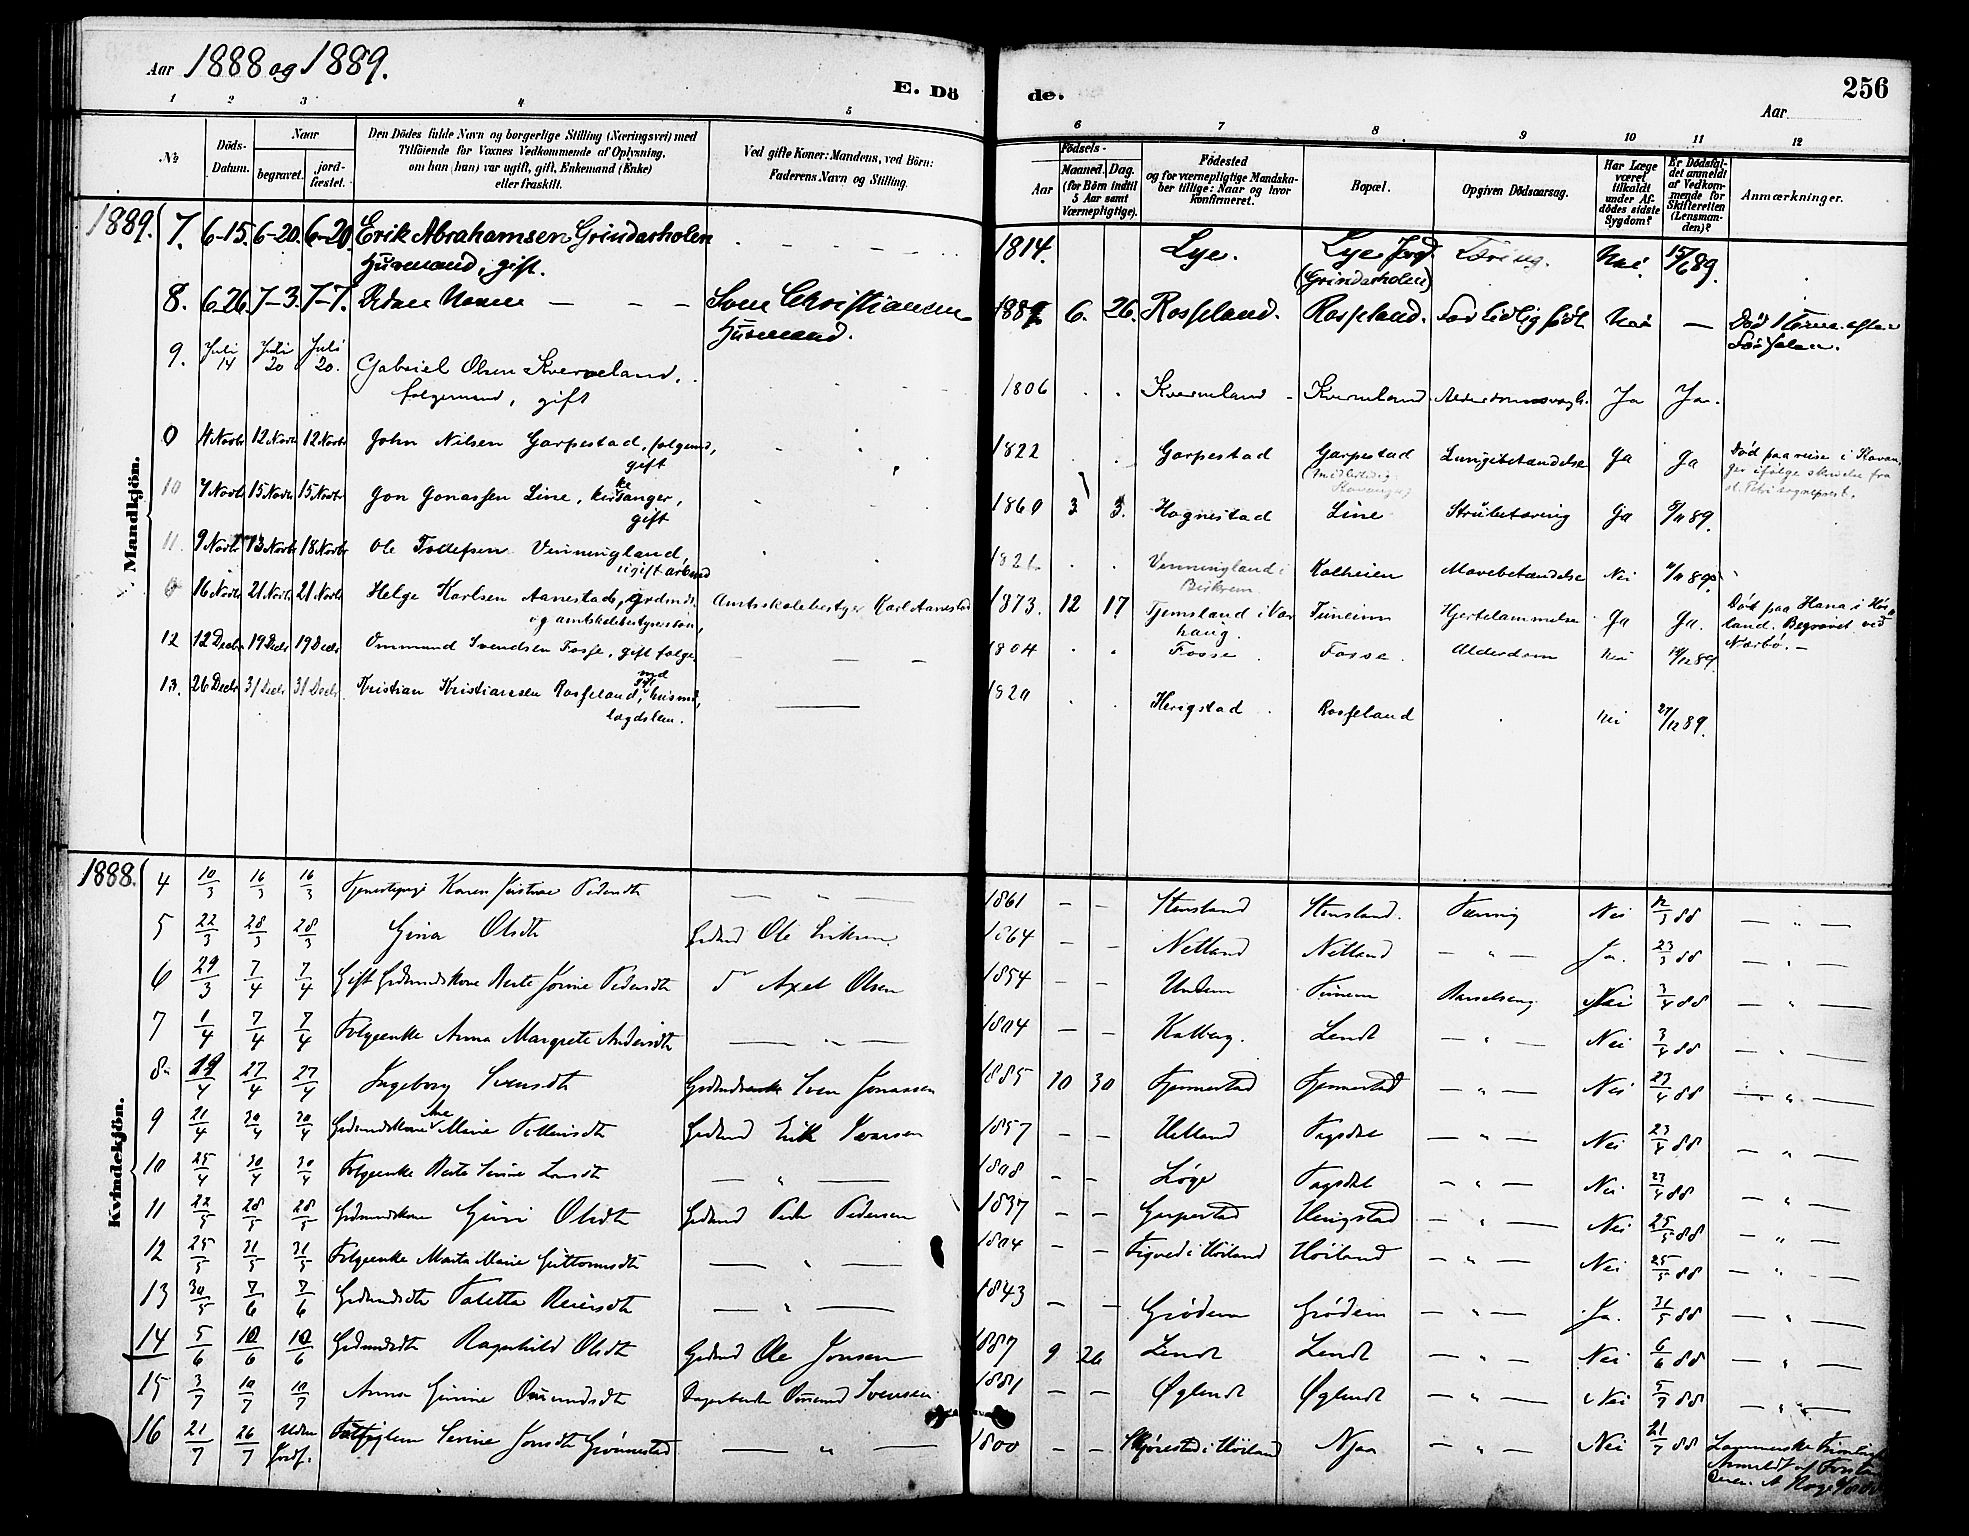 Aar 1888 og 1889.
E. Dö
de.
256
Aar
1 2 3 4 5
6 7 8 9 10 11 12
No
Döds-
Datum.
Naar
begravet.
jord-
fæstet.
Den Dödes fulde Navn og borgerlige Stilling (Næringsvei) med
Tilföiende for Voxnes Vedkommende af Oplysning,
om han (hun) var ugift, gift, Enkemand (Enke)
eller fraskilt.
Ved gifte Koner: Mandens, ved Börn:
Faderens Navn og Stilling.
Födsels-
Aar
Maaned. Dag.
(for Börn indtil
5 Aar samt
Værnepligtige).
Födested
og for værnepligtige Mandska-
ber tillige: Naar og hvor
konfirmeret.
Bopæl.
Opgiven Dödsaarsag.
Har Læge
været
tilkaldt
under Af-
dödes sidste
Sygdom?
Er Dödsfal-
det anmeldt
af Vedkom-
mende for
Skifteretten
(Lensman-
den)?
Anmærkninger.
Mandkjön.
1889. 7. 6-15. 6-20. 6-20 Erik Abrahamsen Grindarholen 1814. Lye. Lye Tæring. Nei 15/6 89.
Husmand, gift. (Grindarholen)
8. 6-26. 7-3. 7-7. Udøbt Sven Christiansen 1889 6. 26. Rosseland. Rosseland. For tidlig født Nei — Død
Husmand.
9. Juli 14 Juli 20 Juli 20. Gabriel Olsen Kverneland, 1806 Kverneland Kverneland Ja Ja.
folgemand, gift
0 4 Novbr 12 Novbr 12 Novbr John Nilsen Garpestad, folgemd, 1822 Garpestad Garpestad Lungebetændelse Ja Ja Død paa reise i Stavan-
gift ger ifølge skrivelse fra
St. Petri sogneprest.
10 7 Novbr 15 Novbr 15 Novbr Jon Jonassen Line, kirkesanger, 1860 3 3. Hognestad Line Strubetæring Ja 8/11 89.
gift
11. 9 Novbr 13 Novbr 18 Novbr Ole Tollefsen Venningland, Venningland i Kalheien Mavebetændelse Nei
ugift arbmd Birkrem
0 16 Novbr 21 Novbr 21 Novbr Helge Karlsen Aanestad, grdmds- Amtsskolebestyrer Karl Aanestad 1873. 12 17 Tjemsland i Var- Tunheim Hjertelammelse Ja Ja. Død paa Hana i Høi-
og amtskolebestyrersøn, haug. land. Begravet ved
Nærbø.
12 12 Decbr 19 Decbr 19 Decbr Ommund Svendsen Fosse, gift folge- 1804 Fosse Fosse. Alderdom Nei
13. 26 Decbr 31 Decbr 31 Decbr Kristian Kristiansen Rosseland, husmd, 1820 Herigstad Rosseland Nei 27/12 89.
lægdslem.
Kvindekjön.
1888. 4 10/3 16/3 16/3 Tjenestepige Karen Kristine Pedersdtr — " — 1861 — — Stensland Stensland. Tæring Nei 12/3 88 — " —
5 22/3 28/3 28/3 Gina Olsdtr Grdmd Ole Eriksen 1864 — — Netland Netland — " — Ja. 23/3 88 — " —
6 29/3 7/4 7/4 Gift Grdmandskone Berte Jorine Pedersdtr do Axel Olsen 1854 — — Undem Tunem Barselseng Nei 3/4 88 — " —
7 1/4 7/4 7/4 Folgeenke Anna Margrete Andersdtr — " — 1804 — — Kalberg. Lende — " — Nei 3/4 88 — " —
8 19/4 27/4 27/4 Ingeborg Svensdtr Sven Jonassen 1885 10 30 Tjennestad Tjennestad — " — Nei 23/4 88 — " —
9 21/4 30/4 30/4 Grdmandskone Ane Marie Grdmd Erik Ivarsen 1857 — — Uelland Fagsdal — " — Nei 23/4 88 — " —
10 25/4 30/4 30/4 Folgeenke Berte Serine Larsdtr — " — 1808 — — Løge Fagsdal — " — Nei 23/4 88 — " —
11 22/5 28/5 28/5 Grdmandskone Guri Olsdtr Grdmd Peder Pedersen 1837 — — Garpestad Herigstad — " — Nei 25/5 88 — " —
12 25/5 31/5 31/5 Folgeenke Marta Marie Guttormsdtr — " — 1804 — — Figved i Høiland Høiland — " — Nei 25/5 88 — " —
13 30/5 7/6 7/6 Grdmdsdtr Taletta Reiersdtr — " — 1843 — — Grødem Grødeim — " — Ja. 31/5 88 — " —
14 5/6 10/6 10/6 Grdmdsdtr Ragnhild Olsdtr Grdmd Ole Jonsen 1887 9 26 Lende Lende — " — Nei 6/6 88 — " —
15 3/7 10/7 10/7 Anna Gurine Omundsdtr Omund Svensen 1881 — — Øglendt Øglendt — " — Nei 5/7 88 — " —
16 21/7 26/7 Uden Jordf. Fattiglem Serine Jonsdtr Grønnestad — " — 1800 — — Skjørestad i Høiland Njaa — " — Nei 21/7 88
Anmeldt af